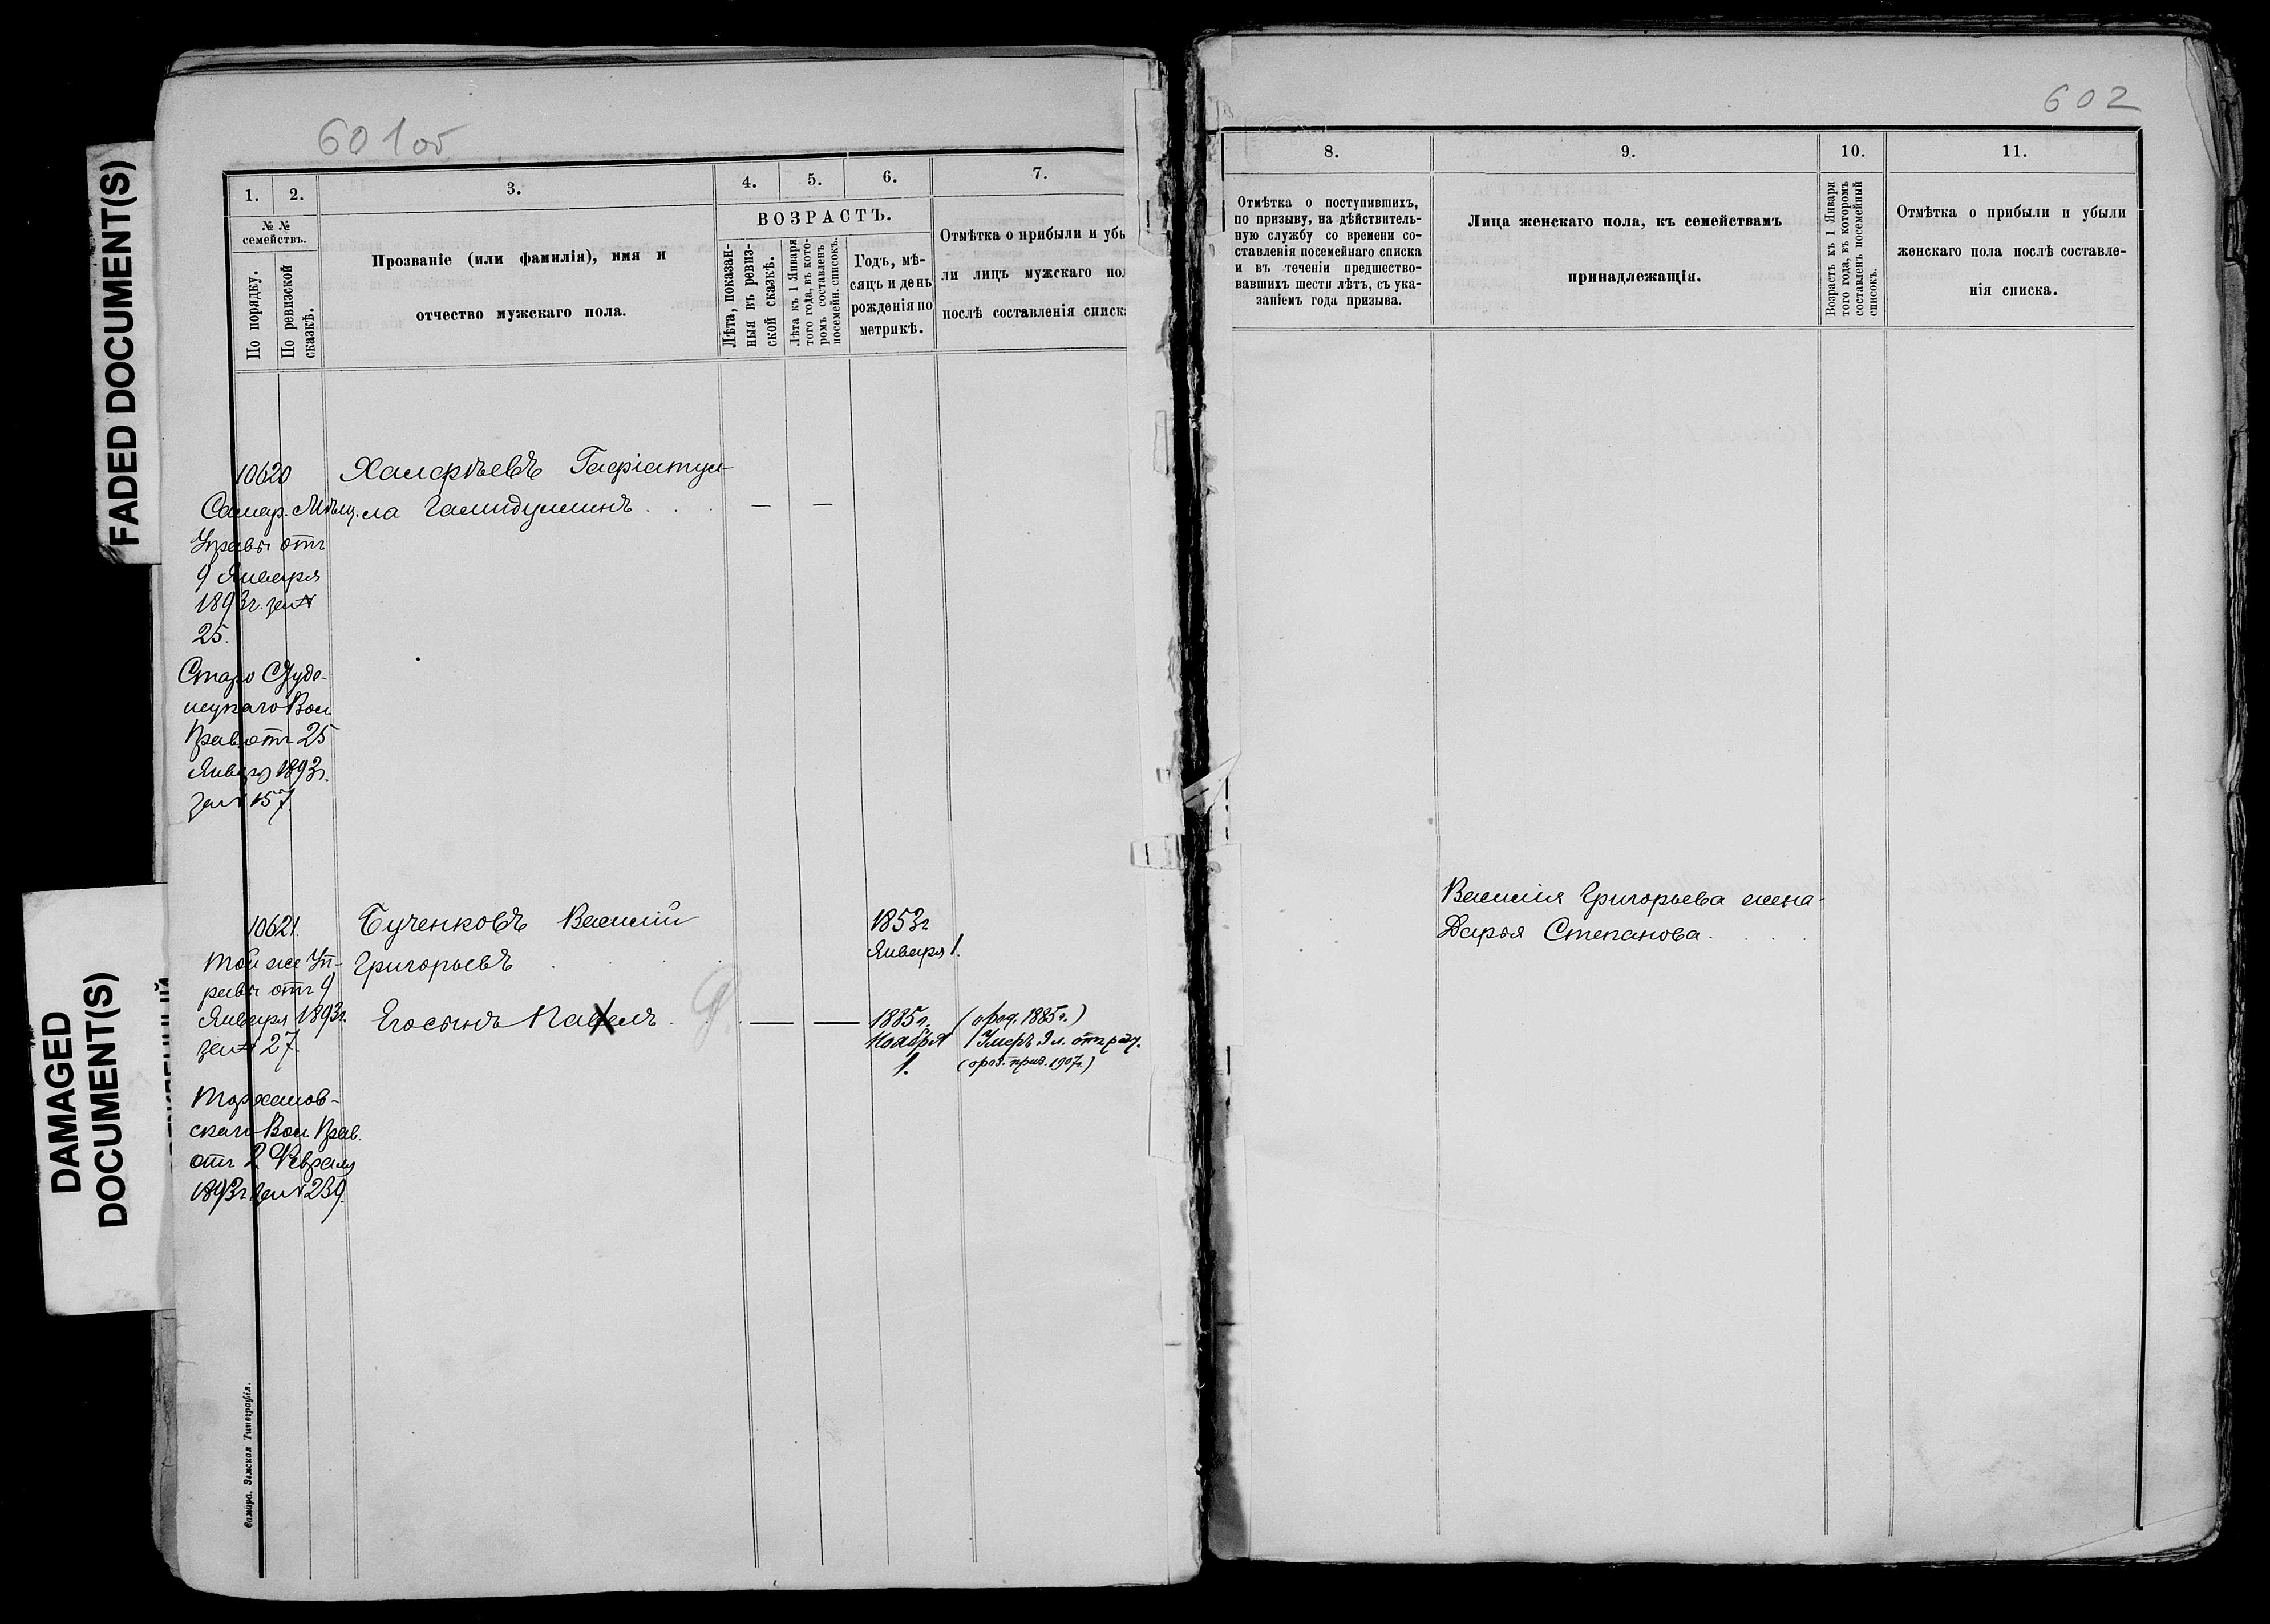 FADED DOCUMENT(S)
DAMAGED
DOCUMENT(S)
601об
1.
2.
3.
4.
5.
6.
7.
№ №
семействъ.
По порядку.
По ревизской
сказкѣ.
Прозваніе (или фамилія), имя и
отчество мужскаго пола.
ВОЗРАСТЪ.
Лѣта, показан-
ныя въ ревиз-
ской сказкѣ.
Лѣта къ 1 Января
того года, въ кото-
ромъ составленъ
посемейн. списокъ.
Годъ, мѣ-
сяцъ и день
рожденія по
метрикѣ.
Отмѣтка о прибыли и убы
ли лицъ мужскаго пол
послѣ составленія списк
10620
Халефѣевъ Гафіатул-
ла Галидуллинъ
Самар. Мѣщ.
Управы отъ
9 Января
1893г. за №
25.
Вол.
Прав. отъ 25
Января 1893г.
за № 157
10621.
Бученковъ Василій
Григорьевъ
1853г
Января 1.
Той же Уп-
равы отъ 9
Января 1893г.
за № 27.
Его сынъ Павелъ
1885г.
Ноября
1.
(о род. 1885г.)
Умеръ
1907г.)
скаго Вол. Прав.
отъ 2 Февраля
1893г за № 239.
Самара, Земская Типографія.
602
8.
9.
10.
11.
Отмѣтка о поступившихъ,
по призыву, на дѣйствитель-
ную службу со времени со-
ставленія посемейнаго списка
и въ теченіи предшество-
вавшихъ шести лѣтъ, съ ука-
заніемъ года призыва.
Лица женскаго пола, къ семействамъ
принадлежащія.
Возрастъ къ 1 Января
того года, въ которомъ
составленъ посемейный
списокъ.
Отмѣтка о прибыли и убыли
женскаго пола послѣ составле-
нія списка.
Василія Григорьева жена
Дарья Степанова